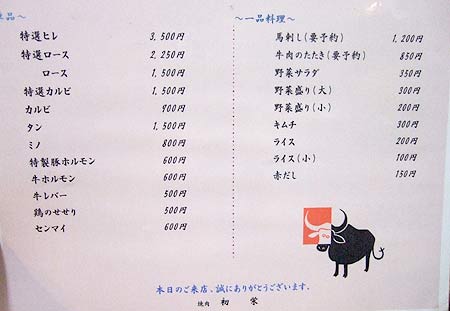 品～
特選ヒレ 3,500円
特選ロース 2,250円
ロース 1,500円
特選カルビ 1,500円
カルビ 900円
タン 1,500円
ミノ 800円
特製豚ホルモン 600円
牛ホルモン 600円
牛レバー 500円
鶏のせせり 500円
センマイ 600円
～一品料理～
馬刺し(要予約) 1,200円
牛肉のたたき(要予約) 850円
野菜サラダ 350円
野菜盛り(大) 300円
野菜盛り(小) 200円
キムチ 300円
ライス 200円
ライス(小) 100円
赤だし 150円
本日のご来店、誠にありがとうございます。
焼肉 初栄